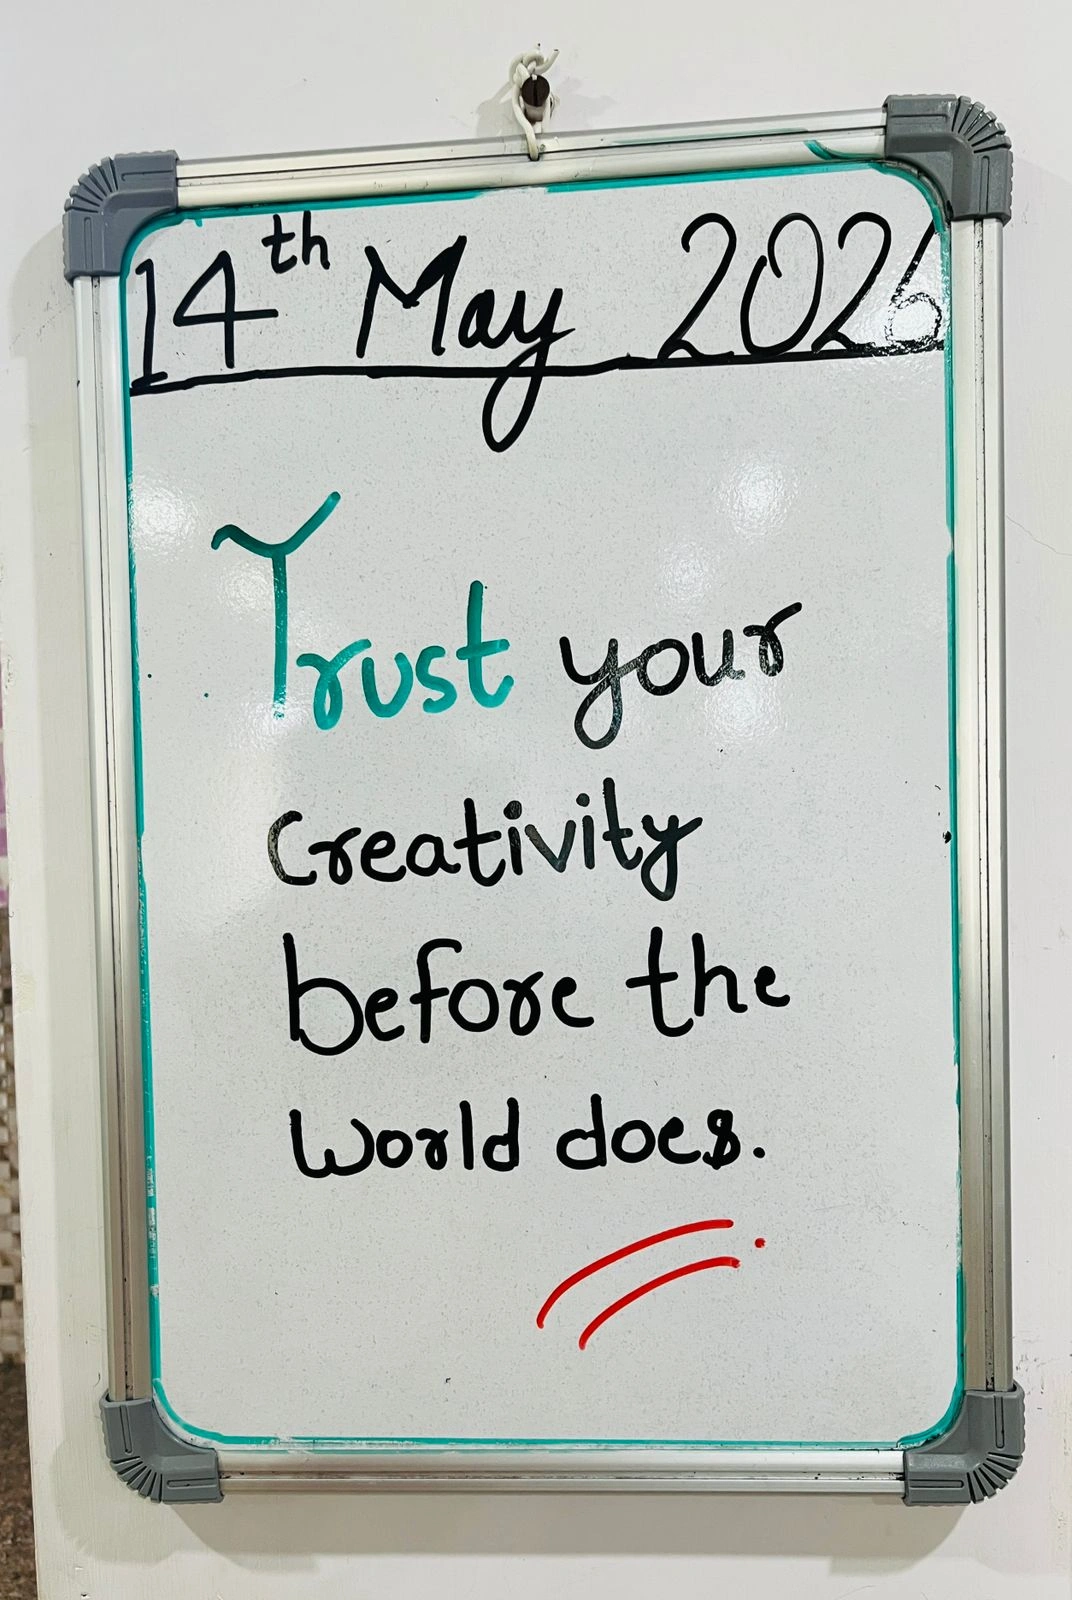 14th May 2026
Trust your
Creativity
before the
World does.